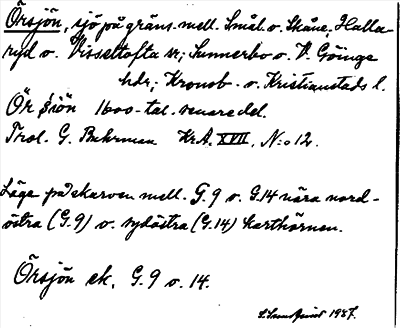 Örsjön, sjö på gräns mell. Smål. o. Skåne, Halla-
ryd o. Visseltofta sr; Sunnerbo o. V. Göinge
hdr; Kronob. o. Kristianstads l.
Ör Siön 1600-tal. senare del.
Trol. G. Buhrman KrA. XVII, N:o 12.
Läge på skarven mell. G.9 o. G.14 nära nord-
östra (G.9) o. sydöstra (G.14) karthörnen.
Örsjön ek. G.9 o. 14.
1937.